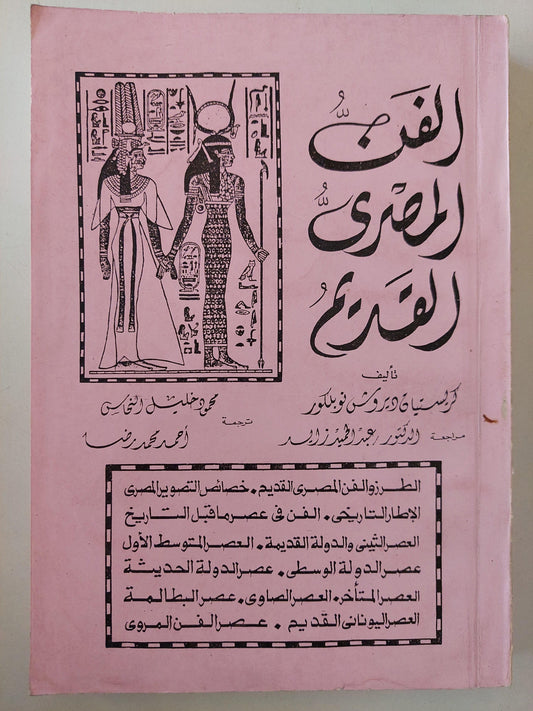 الفن
المصرى
القديم
تأليف
كريستيان ديروش نوبلكور
مراجعة الدكتور/عبد الحميد زايد
ترجمة
محمود خليل النحاس
أحمد محمد رضا
الطرز والفن المصرى القديم • خصائص التصوير المصرى
الإطار التاريخى • الفن فى عصر ما قبل التاريخ
العصر الثينى والدولة القديمة • العصر المتوسط الأول
عصر الدولة الوسطى • عصر الدولة الحديثة
العصر المتأخر • العصر الصاوى • عصر البطالمة
العصر اليونانى القديم • عصر الفن المروى